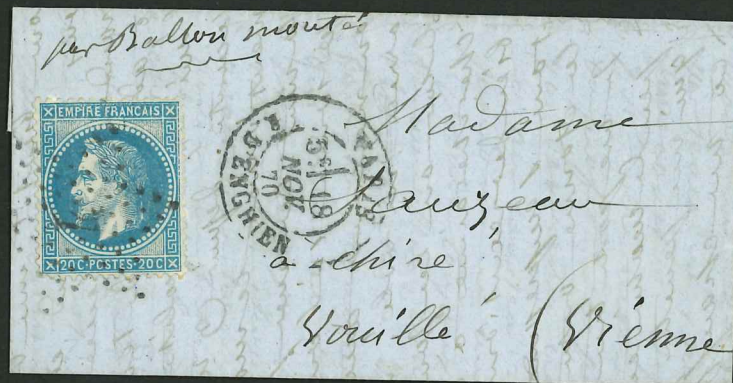 par Ballon monté
EMPIRE FRANCAIS
20C·POSTES·20C
PARIS
R. D'ENGHIEN
5E
18
NOV
70
Madame
Lauzeau
a chiré
Vouillé (Vienne